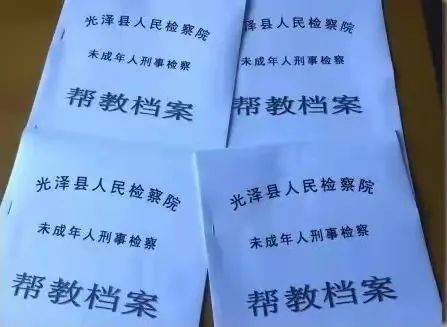 光泽县人民检察院
未成年人刑事检察
帮教档案
光泽县人民检察院
未成年人刑事检察
帮教档案
光泽县人民检察院
未成年人刑事检察
帮教档案
光泽县人民检察院
未成年人刑事检察
帮教档案